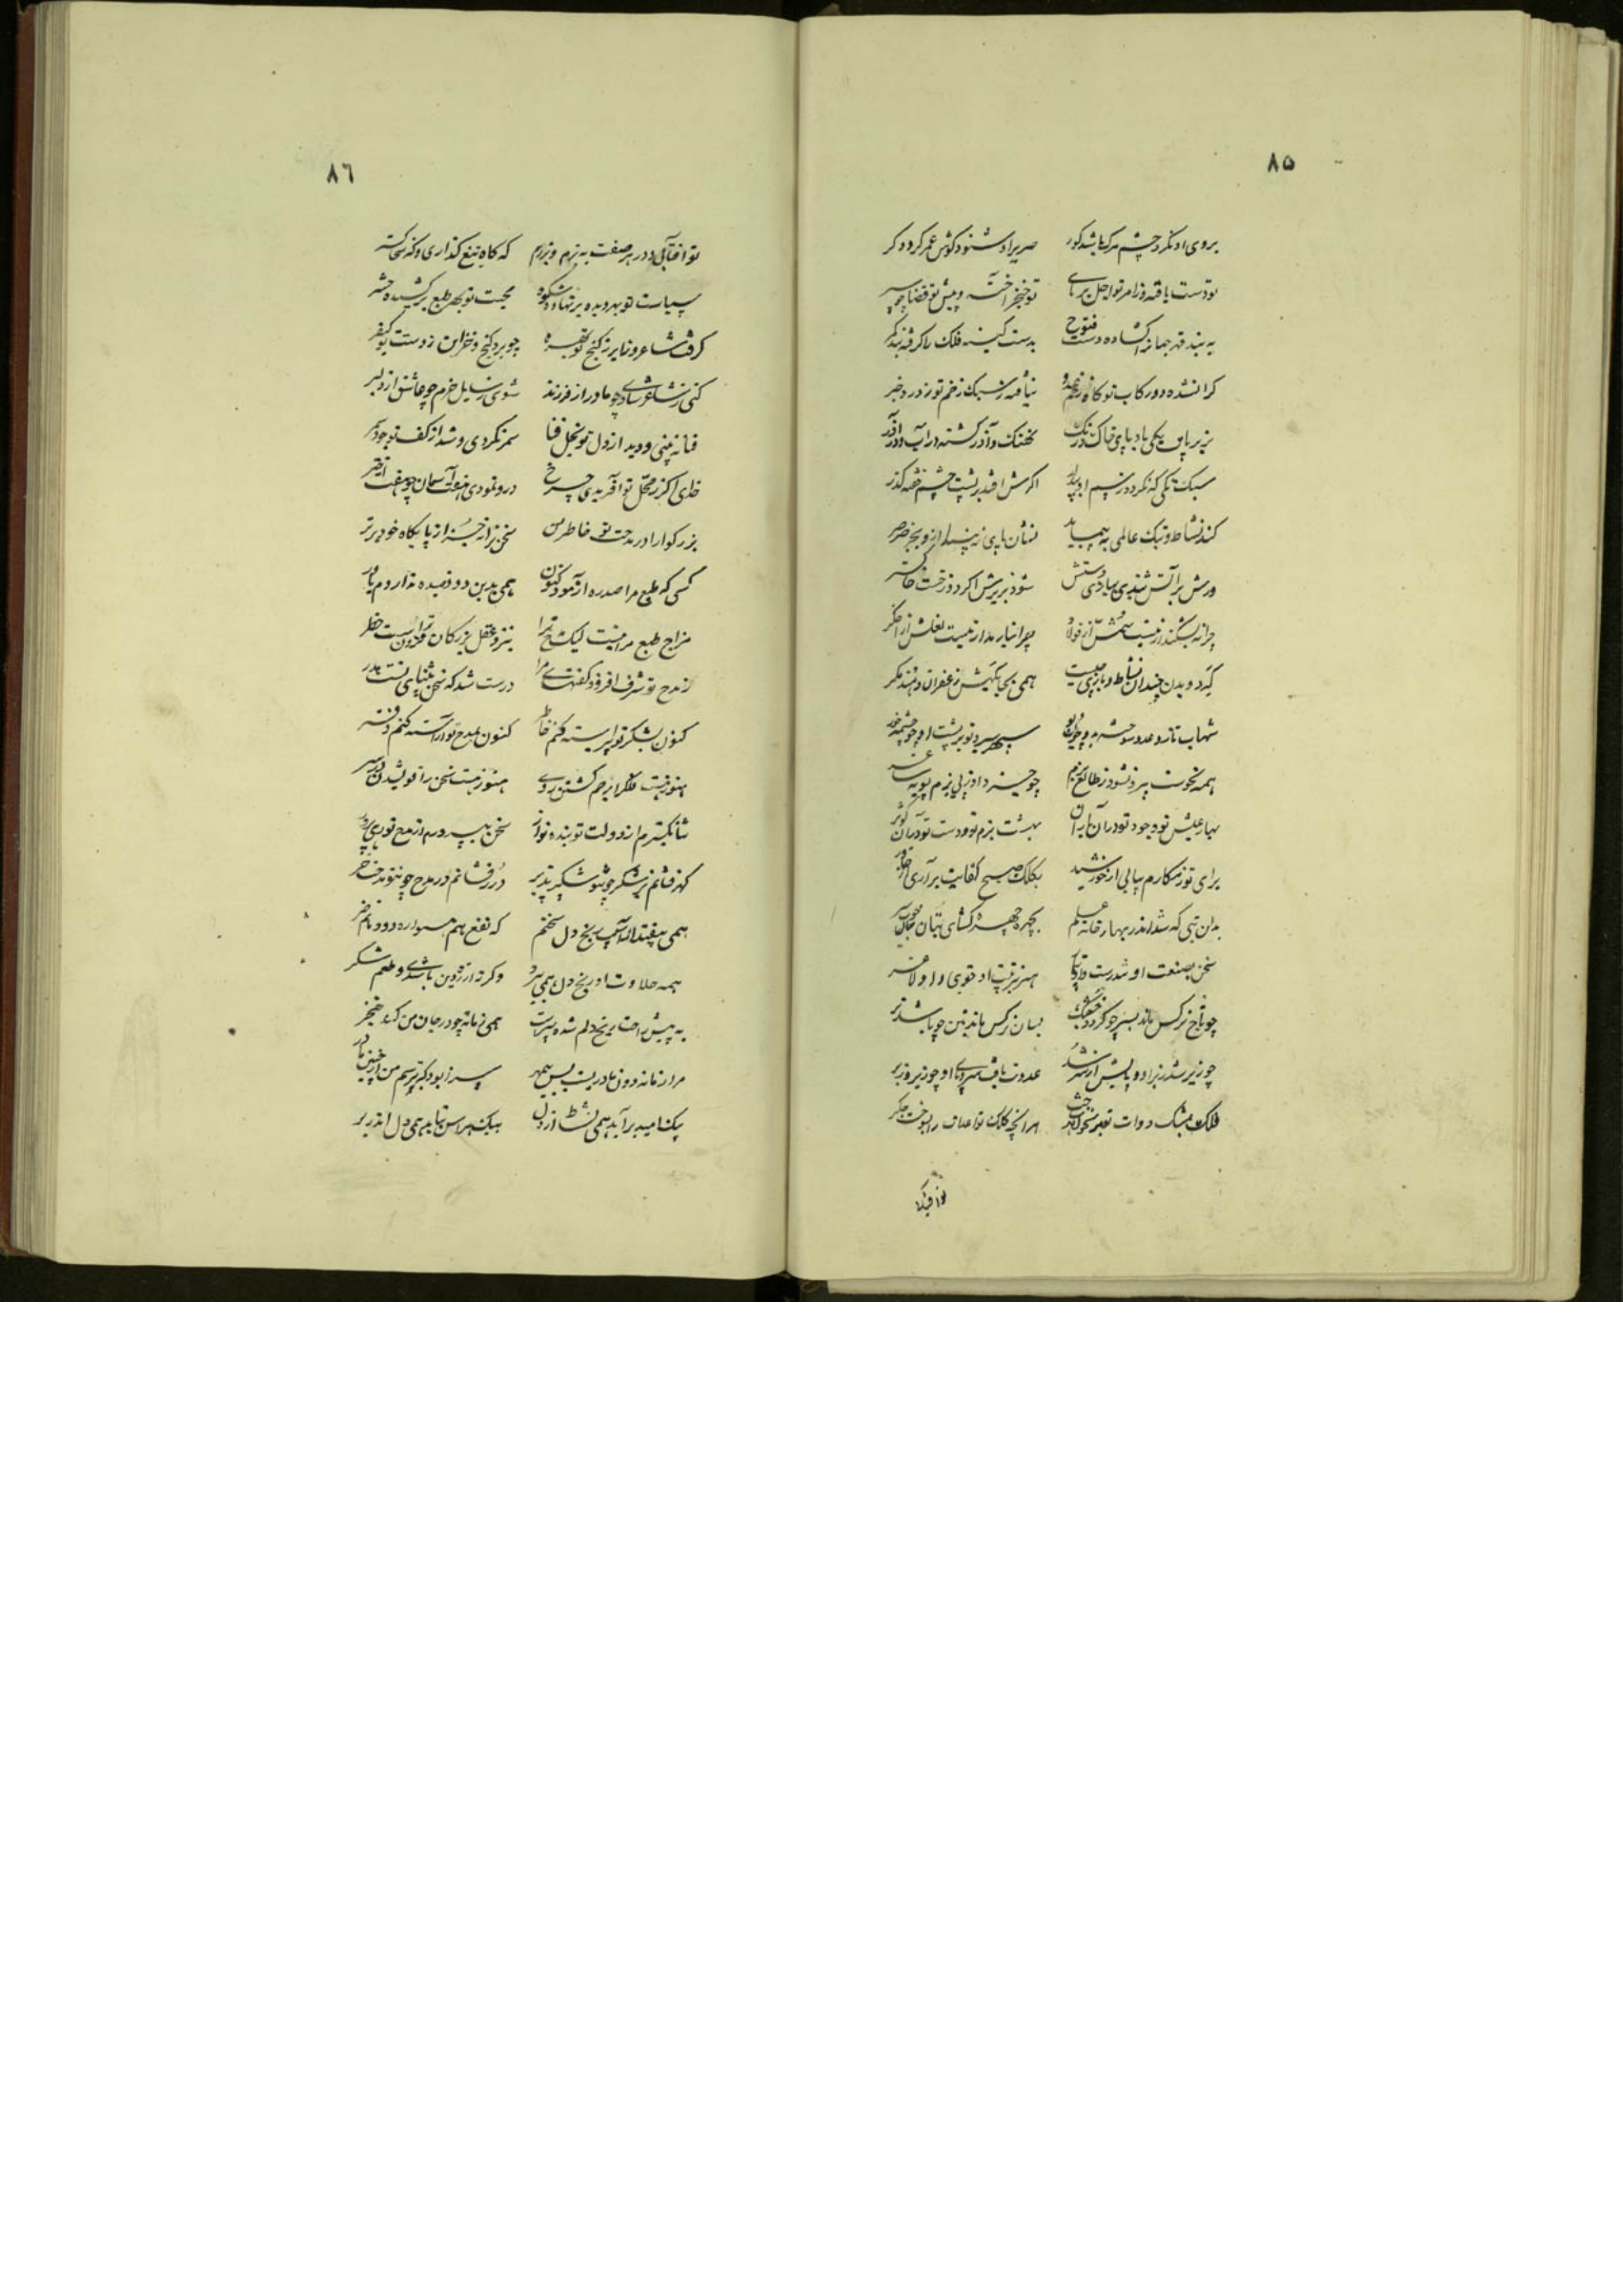 ۸۵
بروی او نکرد چشم مرک باشد کور صریر او شنود کوش عمر کردد کر
تو دست یافته وز امر تو اجل برپای تو خنجر آخته و پیش تو قضا چو سپر
به بند قهر جهانرا کشاده دست فتوح بدست کینه فلک را کرفته بند کمر
کران شده دو رکاب تو کاه زخم عدو نیافته سبک زخم تو
بزیر پای یکی باد پای خاک درنک نهنک وار کشته در آب و در آذر
سبک تکی که نکردد ز سم او بیدار اکرش افتد بر پشت چشم خفته کذر
کند نشاط و بتک عالمی به پیماید نشان پای نه بینند از و بجز صرصر
ورش بر آتش تندی بباد دستش شود بزیرش اکر دوزخست خاکستر
چرا نه بشکند از نیست سمش از فولاد چرا نیارمد ار نیست نعلش از اخکر
بکرد و بدن چندان نشاط و بازی چیست همی بجای کیش زعفران دهند مکر
شهاب تازد و عدو سوخته به و چون دیو سپهر سیر و تو بر پشت او چو چشمه خور
همه نحوست بیرون شود ز طالع بزم چو حیز داوزپی بزم تو به ساغر
بهار عیش تو وجود تو در آن باران بهشت بزم تو و دست تو در آن کوثر
برای تو ز مکارم بیابی از خورشید بکلک صبح کفایت بر آری از خاور
بدان بتی که شد اندر بهار خانه علم بچهره چهره کشای بتان
سخن بصنعت او شد درست هنر بتربیت او قوی و او لاغر
چو تاج نرکس ماند بسر چو کردد خشک بسان نرکس ماند بتن چو باشد تر
چو زیر شد ز برا و و پایش از سر شد عدوت یافت سر و پای او چو زیر و زبر
فلک بمشک دوات تو بر نوشت هر آنچه کلک تو اعدات را بسوخت جکر
تو آفتابی
۸۶
تو آفتابی و در هر صفت به رزم و بزم که کاه تیغ کذاری و که سخا کستر
سیاست تو بهر دیده بر نهاده شکوه محبت تو بهر طبع بر کشیده حشر
کرفت شاعر و زایر ز کنج تو بهره چو برد کنج و خزاین ز دست تو کیفر
کنی ز شاعر شادی چو مادر از فرزند شوی ز سایل خرم چو عاشق از دلبر
فنا نه بینی و دید از دل تو نخل فنا سمر نکردی و شد از کف تو جود سمر
خدای اکر ز محل تو آفریدی چرخ درو نمودی هفت آسمان چو هفت اختر
بزرکوارا در مدحت تو خاطر من سخن نراند جز از پایکاه خود برتر
کسی که طبع مرا صد ره آزمود کنون همی بدین دو قصیده ندارد م باور
مزاج طبع مرا نیست لیک شاخ ترا بنزد عقل بزرکان فزون ترست خطر
ز مدح تو شرف افزود کفتهای مرا درست شد که سخن را ثنای تست پدر
کنون بشکر تو پیراسته کنم خاطر کنون بمدح تو آراسته کنم دفتر
هنوز نیست فلک را بر جم کشتن روی هنوز نیست سخن را نویشدن در سر
ثنا بکسترم از دولت تو بنده نواز سخن بپرورم از مدح تو
کهر فشانم در شکر چو تو شکر پذیر درر فشانم در مدح چو تو مدحت خر
همی بیفتد از آسیب رنج دل سخنم که نفع باهم همواره رود و با هم ضر
همه حلاوت او رنج دل همی ببرد وکر نه ار نه چنین باشدی و طعم شکر
به پیش راحت رنج دلم شده ست سپر همی زمانه چو در جان من کند خنجر
مرا زمانه دون مادریست بس بی مهر سزا بود که بترسم من از چنین مادر
بیک امید بر آید همی نشاط از دل بیک هراس نماید همی دل اندر بر